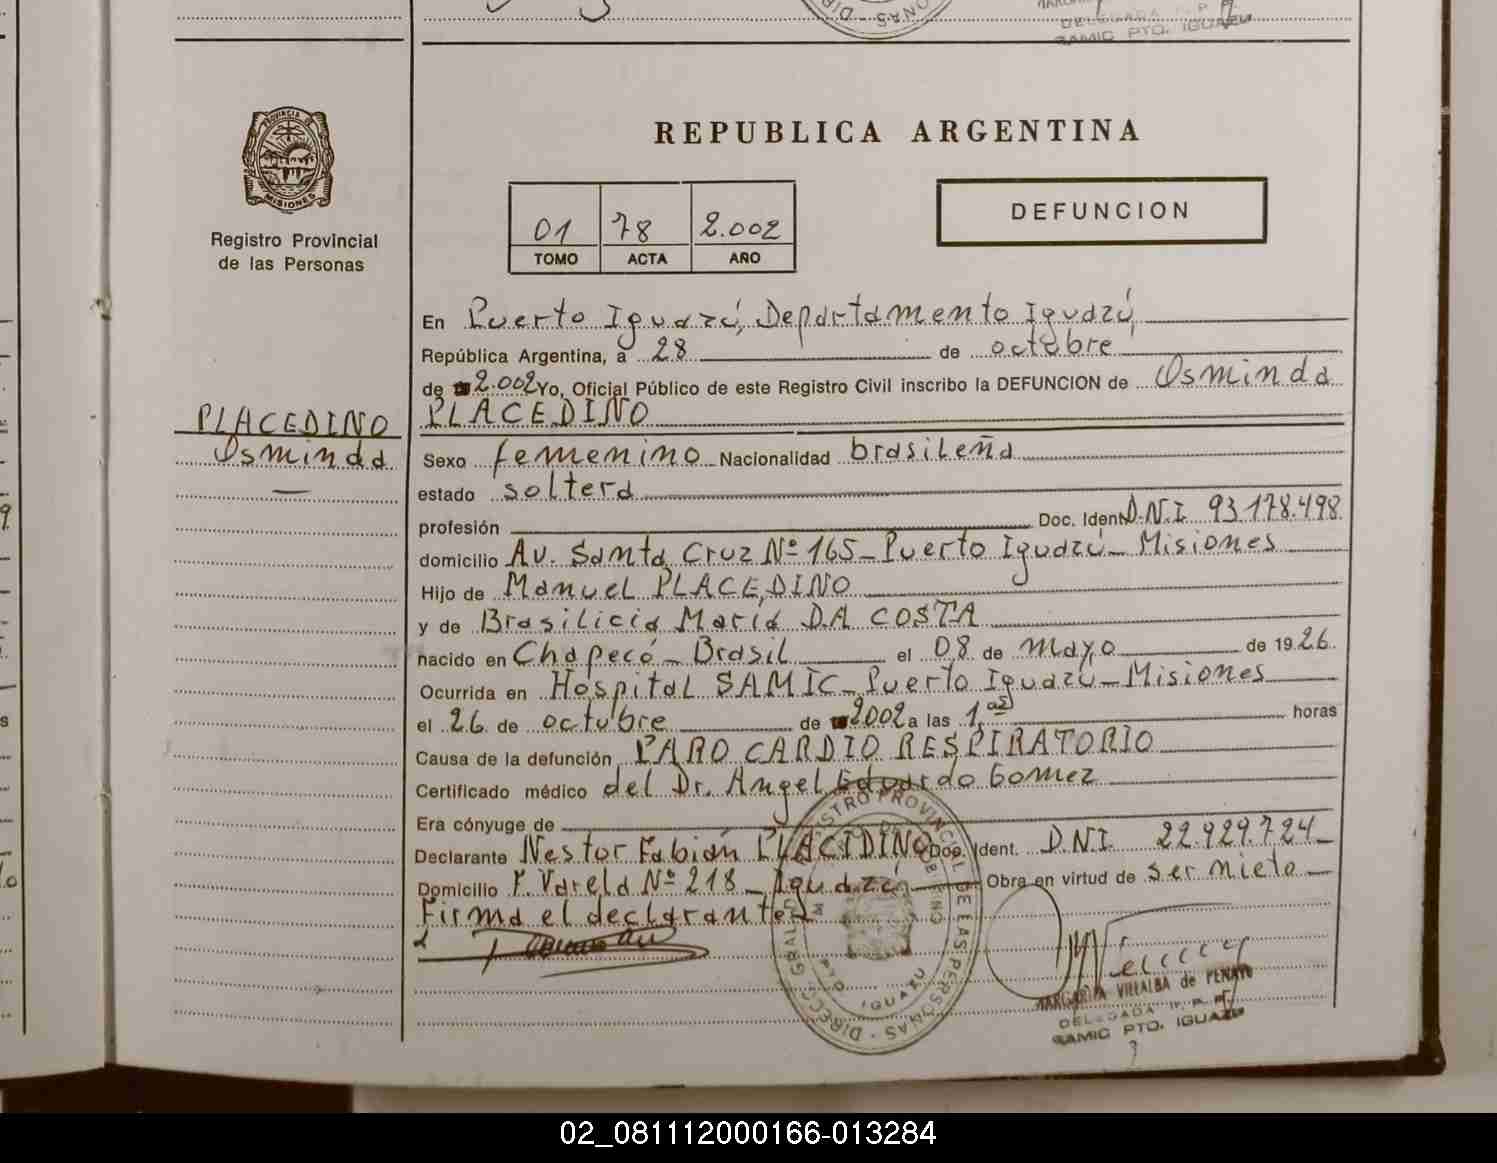 DELEGADA R. P. P.
SAMIC PTO. IGUAZU
PROVINCIA DE MISIONES
Registro Provincial
de las Personas
REPUBLICA ARGENTINA
01 78 2.002
TOMO ACTA AÑO
DEFUNCION
En Puerto Iguazú, Departamento Iguazú,
República Argentina, a 28 de octubre
de 2.002 Yo, Oficial Público de este Registro Civil inscribo la DEFUNCION de Osminda
PLACEDINO
PLACEDINO
Osminda
Sexo femenino Nacionalidad brasileña
estado soltera
profesión Doc. Ident. D.N.I. 93.178.498
domicilio Av. Santa Cruz Nº 165 - Puerto Iguazú - Misiones
Hijo de Manuel PLACEDINO
y de Brasilicia María DA COSTA
nacido en Chapecó - Brasil el 08 de mayo de 1926.
Ocurrida en Hospital SAMIC - Puerto Iguazú - Misiones
el 26 de octubre de 2002 a las 1,as horas
Causa de la defunción PARO CARDIO RESPIRATORIO
Certificado médico del Dr. Angel Eduardo Gomez
Era cónyuge de
Declarante Nestor Fabián PLACIDINO Doc. Ident. D.N.I. 22.929.724 -
Domicilio F. Varela Nº 218 - Iguazú Obra en virtud de ser nieto -
Firma el declarante
DIRECC. GRAL. REGISTRO PROVINCIAL DE LAS PERSONAS
PTO. IGUAZU
MARGARITA VILLALBA de PENAYO
DELEGADA R. P. P.
SAMIC PTO. IGUAZU
02_081112000166-013284